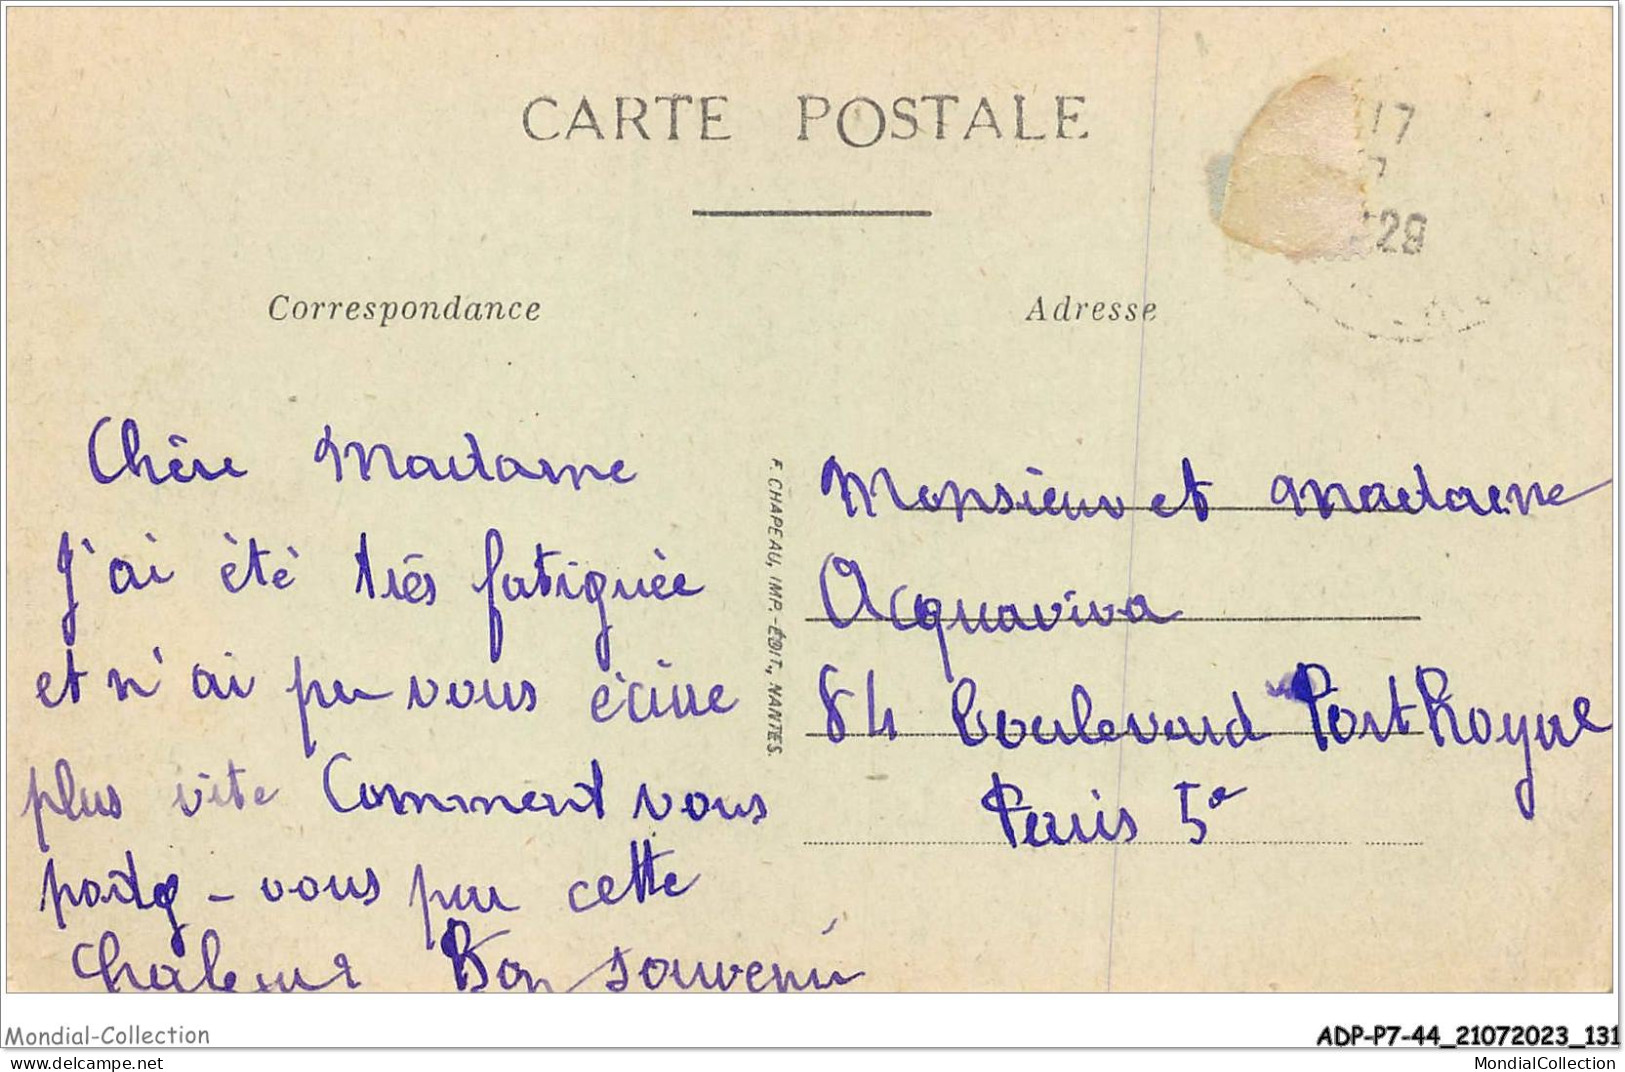 CARTE POSTALE
17
7
29
Correspondance
Adresse
Chère Madame
J'ai été très fatiguée
et n'ai pu vous écrire
plus vite Comment vous
portez-vous par cette
Chaleur Bon souvenir
F. CHAPEAU, IMP.-ÉDIT., NANTES.
Monsieur et Madame
Acquaviva
84 boulevard Port Royal
Paris 5e
Mondial-Collection
ADP-P7-44_21072023_131
MondialCollection